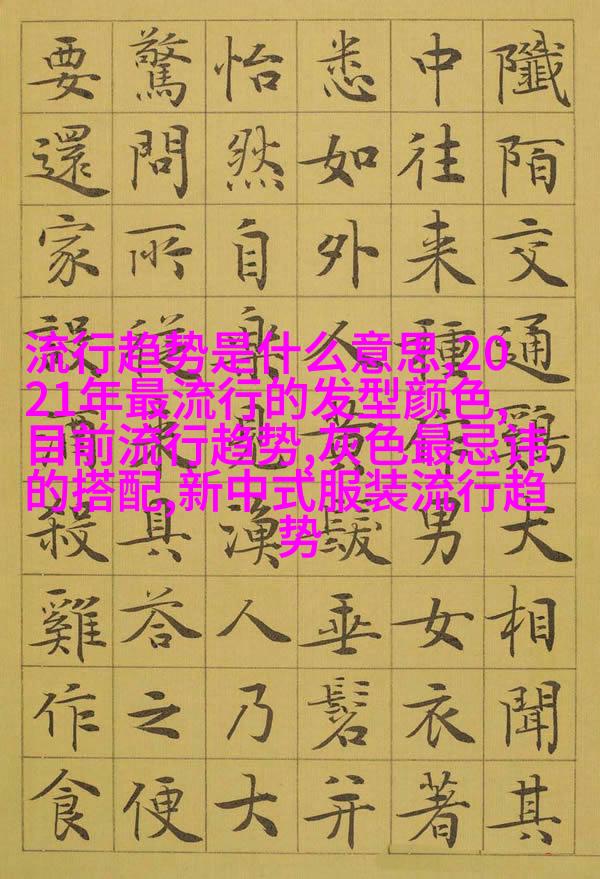 陌交通鷄犬相聞其
中往来種作男女衣著
悉如外人黄髮垂髫并
怡然自樂見漁人乃大
驚問所從来具答之便
要還家設酒殺雞作食
流行趋势是什么意思,20
21年最流行的发型颜色,
目前流行趋势,灰色最忌讳
的搭配,新中式服装流行趋
势